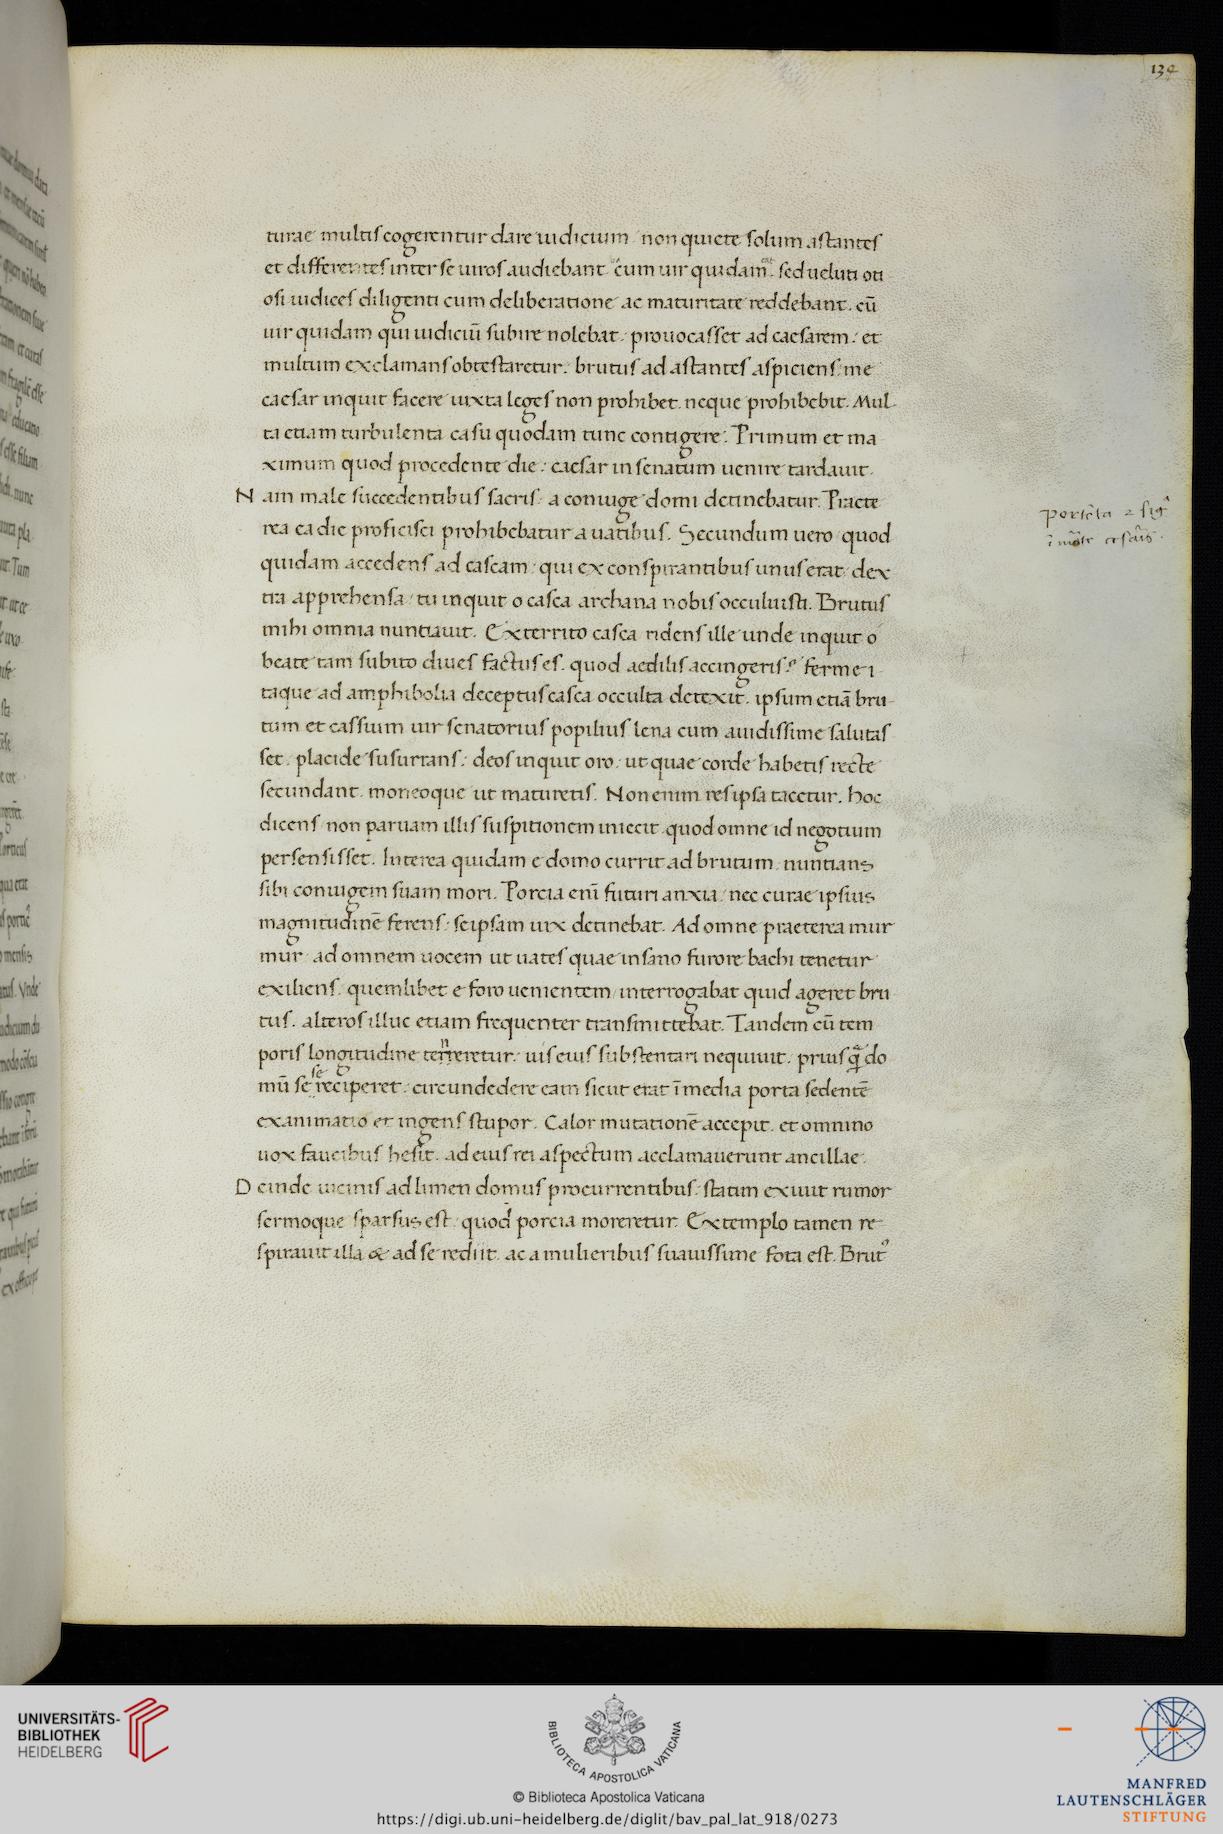 134
turae multis cogerentur dare iudicium non quiete solum astantes
et differentes inter se uiros audiebant cum uir quidam sed ueluti oti
osi iudices diligenti cum deliberatione ac maturitate reddebant. cū
uir quidam qui iudiciū subire nolebat prouocasset ad caesarem: et
multum exclamans obtestaretur. brutus ad astantes aspiciens me
caesar inquit facere iuxta leges non prohibet. neque prohibebit. Mul
ta etiam turbulenta casu quodam tunc contigere. Primum et ma
ximum quod procedente die: caesar in senatum uenire tardauit.
Nam male succedentibus sacris a coniuge domi detinebatur. Praete
rea ea die proficisci prohibebatur a uatibus. Secundum uero quod
quidam accedens ad cascam qui ex conspirantibus unus erat dex
tra apprehensa tu inquit o casca archana nobis occuluisti. Brutus
mihi omnia nuntiauit. Exterrito casca ridens ille unde inquit o
beate tam subito diues factus es. quod aedilis accingeris? ferme i
taque ad amphibolia deceptus casca occulta detexit. ipsum etiā bru
tum et cassium uir senatorius popilius lena cum auidissime salutas
set. placide susurrans: deos inquit oro ut quae corde habetis recte
secundant. moneoque ut maturetis. Non enim res ipsa tacetur. hoc
dicens non paruam illis suspitionem iniecit quod omne id negotium
persensisset. Interea quidam e domo currit ad brutum nuntians
sibi coniugem suam mori. Porcia enī futuri anxia nec curae ipsius
magnitudinē ferens: se ipsam uix detinebat. Ad omne praeterea mur
mur ad omnem uocem ut uates quae insano furore bachi tenetur
exiliens quemlibet e foro uenientem interrogabat quid ageret bru
tus. alteros illuc etiam frequenter transmittebat. Tandem cū tem
poris longitudine terreretur. uis eius substentari nequiuit. prius q̄ do
mū se reciperet. circundedere eam sicut erat ī media porta sedentē
exanimatio et ingens stupor. Calor mutationē accepit. et omnino
uox faucibus hesit. ad eius rei aspectum acclamauerunt ancillae.
Deinde uicinis ad limen domus procurrentibus: statim exiuit rumor
sermoque sparsus est quod porcia moreretur. Extemplo tamen re
spirauit illa & ad se rediit. ac a mulieribus suauissime fota est. Brut9
UNIVERSITÄTS-
BIBLIOTHEK
HEIDELBERG
BIBLIOTECA APOSTOLICA VATICANA
© Biblioteca Apostolica Vaticana
https://digi.ub.uni-heidelberg.de/diglit/bav_pal_lat_918/0273
MANFRED
LAUTENSCHLÄGER
STIFTUNG